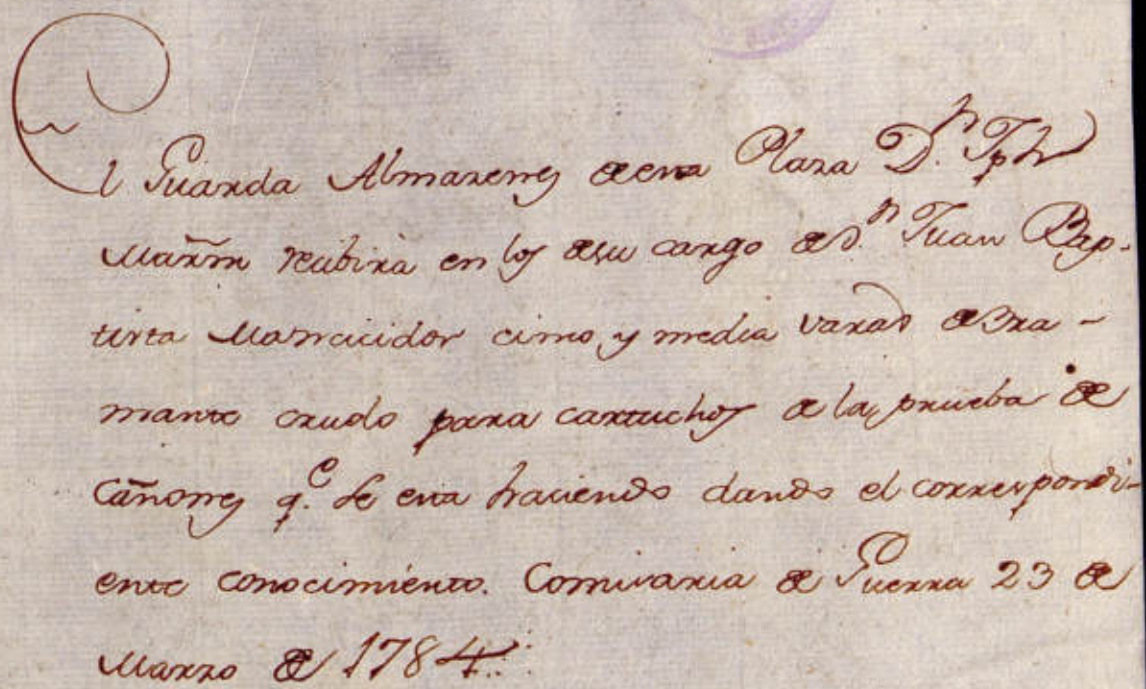 El Guarda Almazenes de esta Plaza D.n Jph
Mar̃in recibirá en los de su cargo de D.n Juan Bap-
tista Mancicidor cinco, y media varas de Bra-
mante crudo para cartuchos de la prueba de
Cañones q.e se esta haciendo dando el correspondi-
ente conocimiento. Comisaria de Guerra 23 de
Marzo de 1784.